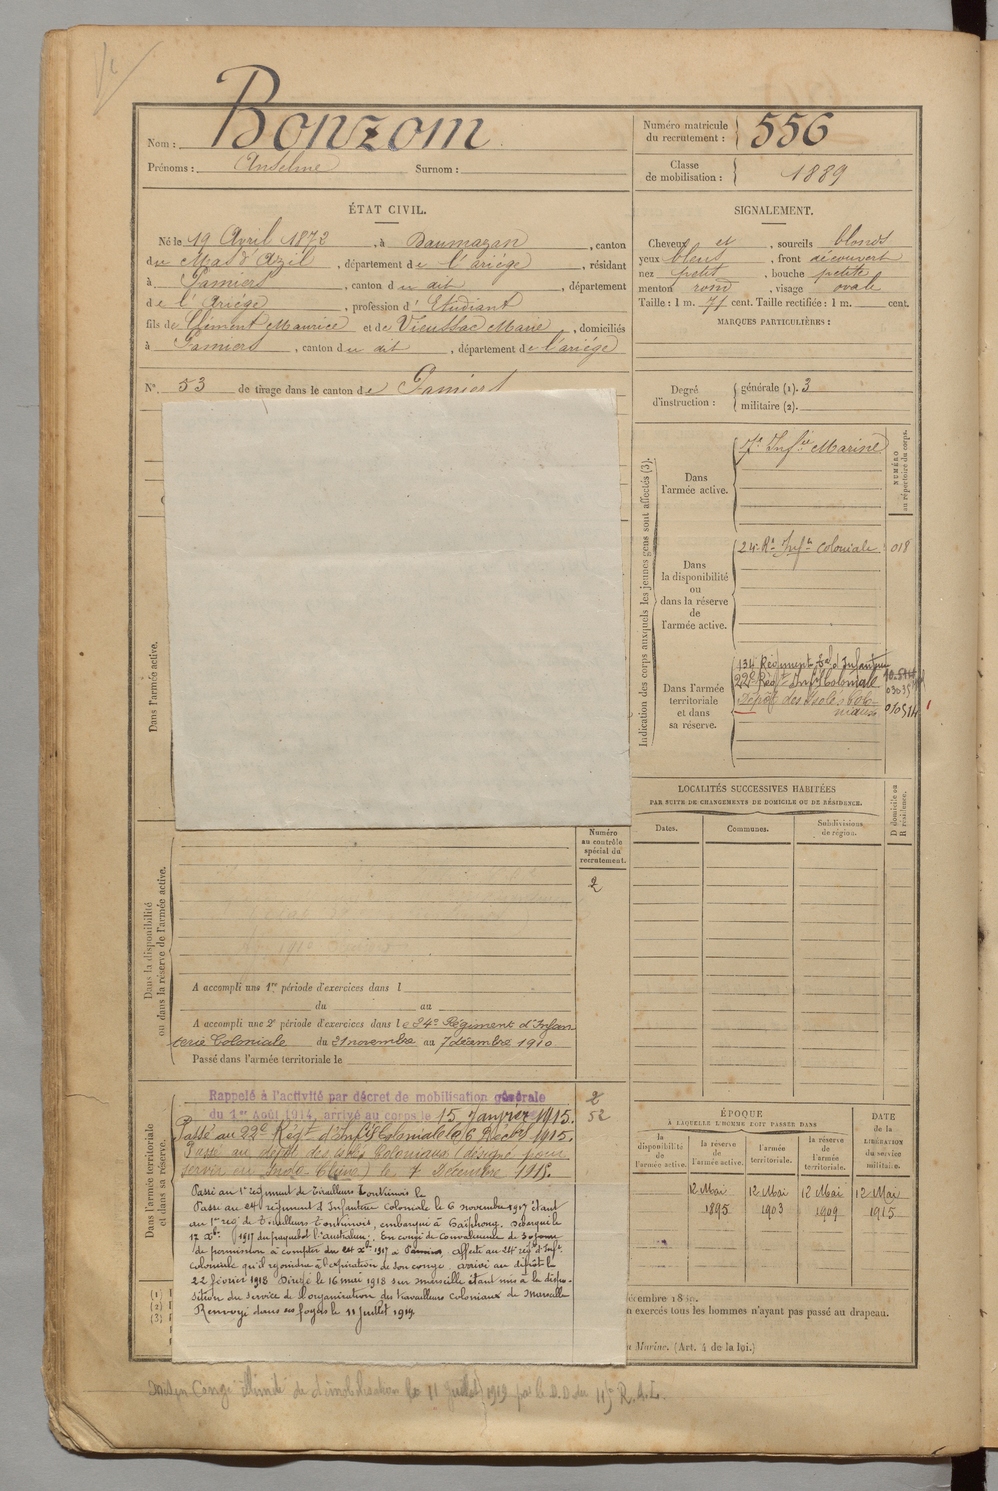 Nom : Bonzom
Prénoms : Anselme Surnom :
Numéro matricule
du recrutement : 556
Classe
de mobilisation : 1889
ÉTAT CIVIL.
Né le 19 Avril 1872, à Daumazan, canton
du Mas d'Azil, département de l'ariége, résidant
à Pamiers, canton du dit, département
de l'Ariége, profession d'Etudiant
fils de Clément Maurice et de Vieussac Marie, domiciliés
à Pamiers, canton du dit, département de l'ariége
N° 53 de tirage dans le canton de Pamiers
SIGNALEMENT.
Cheveux et, sourcils blonds
yeux bleus, front découvert
nez petit, bouche petite
menton rond, visage ovale
Taille : 1 m. 71 cent. Taille rectifiée : 1 m. cent.
MARQUES PARTICULIÈRES :
Degré
d'instruction :
générale (1). 3
militaire (2).
Indication des corps auxquels les jeunes gens sont affectés (3).
NUMÉRO
au répertoire du corps.
Dans
l'armée active.
7e Infie Marine
Dans
la disponibilité
ou
dans la réserve
de
l'armée active.
24e Rt Infie Coloniale 018
Dans l'armée
territoriale
et dans
sa réserve.
134 Régiment tal d'Infanterie
22e Régt Infie Coloniale
Dépôt des Isolés Colo-
niaux
LOCALITÉS SUCCESSIVES HABITÉES
PAR SUITE DE CHANGEMENTS DE DOMICILE OU DE RÉSIDENCE.
Dates. Communes. Subdivisions
de région.
D domicile ou
R résidence.
Dans l'armée active.
Dans la disponibilité
ou dans la réserve de l'armée active.
Numéro
au contrôle
spécial du
recrutement.
2
A accompli une 1re période d'exercices dans l
du au
A accompli une 2e période d'exercices dans le 24e Régiment d'Infan
terie Coloniale du 21 novembre au 7 décembre 1910
Passé dans l'armée territoriale le
Dans l'armée territoriale
et dans sa réserve.
2
52
Rappelé à l'activité par décret de mobilisation générale
du 1er Août 1914, arrivé au corps le 15 Janvier 1915.
Passé au 22e Régt d'Infie Coloniale le 6 Décbre 1915.
Passé au dépôt des Isolés Coloniaux (désigné pour
servir en Indo-Chine) le 7 Décembre 1915.
Passé au 1er régiment de Tirailleurs Tonkinois le
Passé au 24 régiment d'Infanterie Coloniale le 6 novembre 1917 étant
au 1er reg' de Tirailleurs Tonkinois, embarqué à Haïphong. Débarqué le
17 Xbre 1917 du paquebot l'australien. En congé de convalescence de 30 jours
de permission à compter du 24 Xbre 1917 à Pamiers, affecté au 24 reg' d'Infie
coloniale qu'il rejoindra à l'expiration de son congé. arrivé au dépôt le
22 février 1918 Dirigé le 16 mai 1918 sur marseille étant mis à la dispo-
sition du service de l'organisation des travailleurs coloniaux de Marseille
Renvoyé dans ses foyers le 11 juillet 1919
ÉPOQUE
A LAQUELLE L'HOMME DOIT PASSER DANS
la
disponibilité
de
l'armée active.
la réserve
de
l'armée active.
l'armée
territoriale.
la réserve
de
l'armée
territoriale.
DATE
de la
LIBÉRATION
du service
militaire.
12 Mai 12 Mai 12 Mai 12 Mai
1895 1903 1909 1915
(1)
(2)
(3)
décembre 1889.
n exercés tous les hommes n'ayant pas passé au drapeau.
Marine. (Art. 4 de la loi.)
Congé illimité de démobilisation le 11 juillet 1919 par le D.D. du 117e R.A.L.